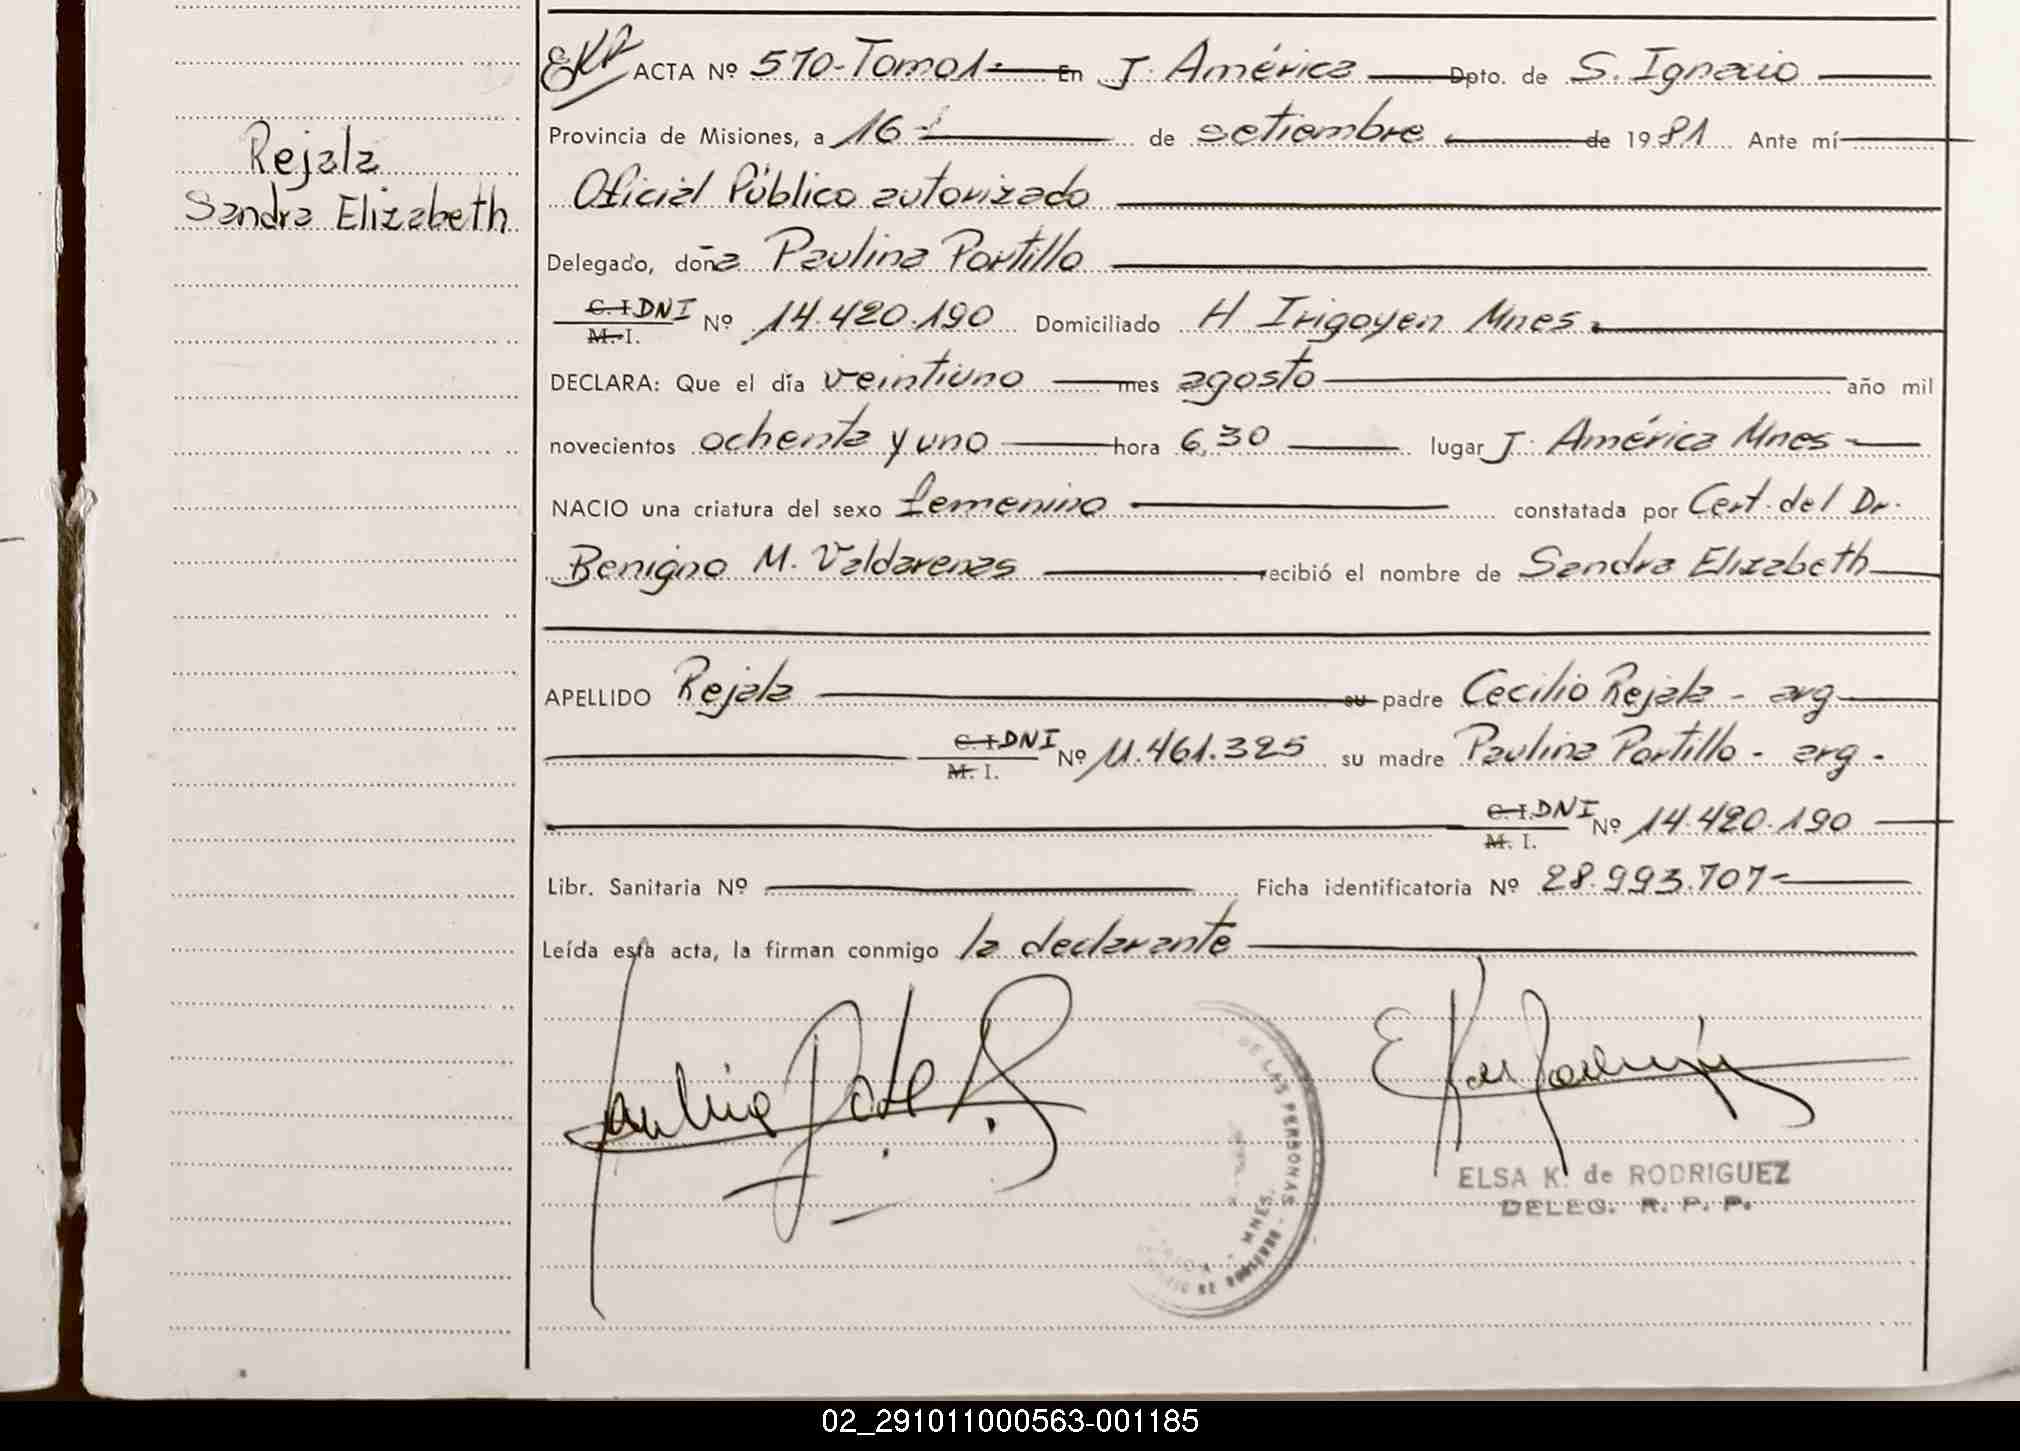 Rejala
Sandra Elizabeth
EKR ACTA Nº 570-Tomo1- En J. América Dpto. de S. Ignacio
Provincia de Misiones, a 16- de setiembre de 1981 Ante mí
Oficial Público autorizado
Delegado, doña Paulina Portillo
C. I DNI
M. I. Nº 14.420.190 Domiciliado H Irigoyen Mnes.
DECLARA: Que el día veintiuno mes agosto año mil
novecientos ochenta y uno hora 6,30 lugar J. América Mnes
NACIO una criatura del sexo femenino constatada por Cert. del Dr.
Benigno M. Valdarenas recibió el nombre de Sandra Elizabeth
APELLIDO Rejala su padre Cecilio Rejala - arg
C. I. DNI
M. I. Nº 11.461.325 su madre Paulina Portillo - arg -
C. I. DNI
M. I. Nº 14.420.190
Libr. Sanitaria Nº Ficha identificatoria Nº 28.993.707-
Leída esta acta, la firman conmigo la declarante
DE LAS PERSONAS - MNES.
ELSA K. de RODRIGUEZ
DELEG. R. P. P.
02_291011000563-001185